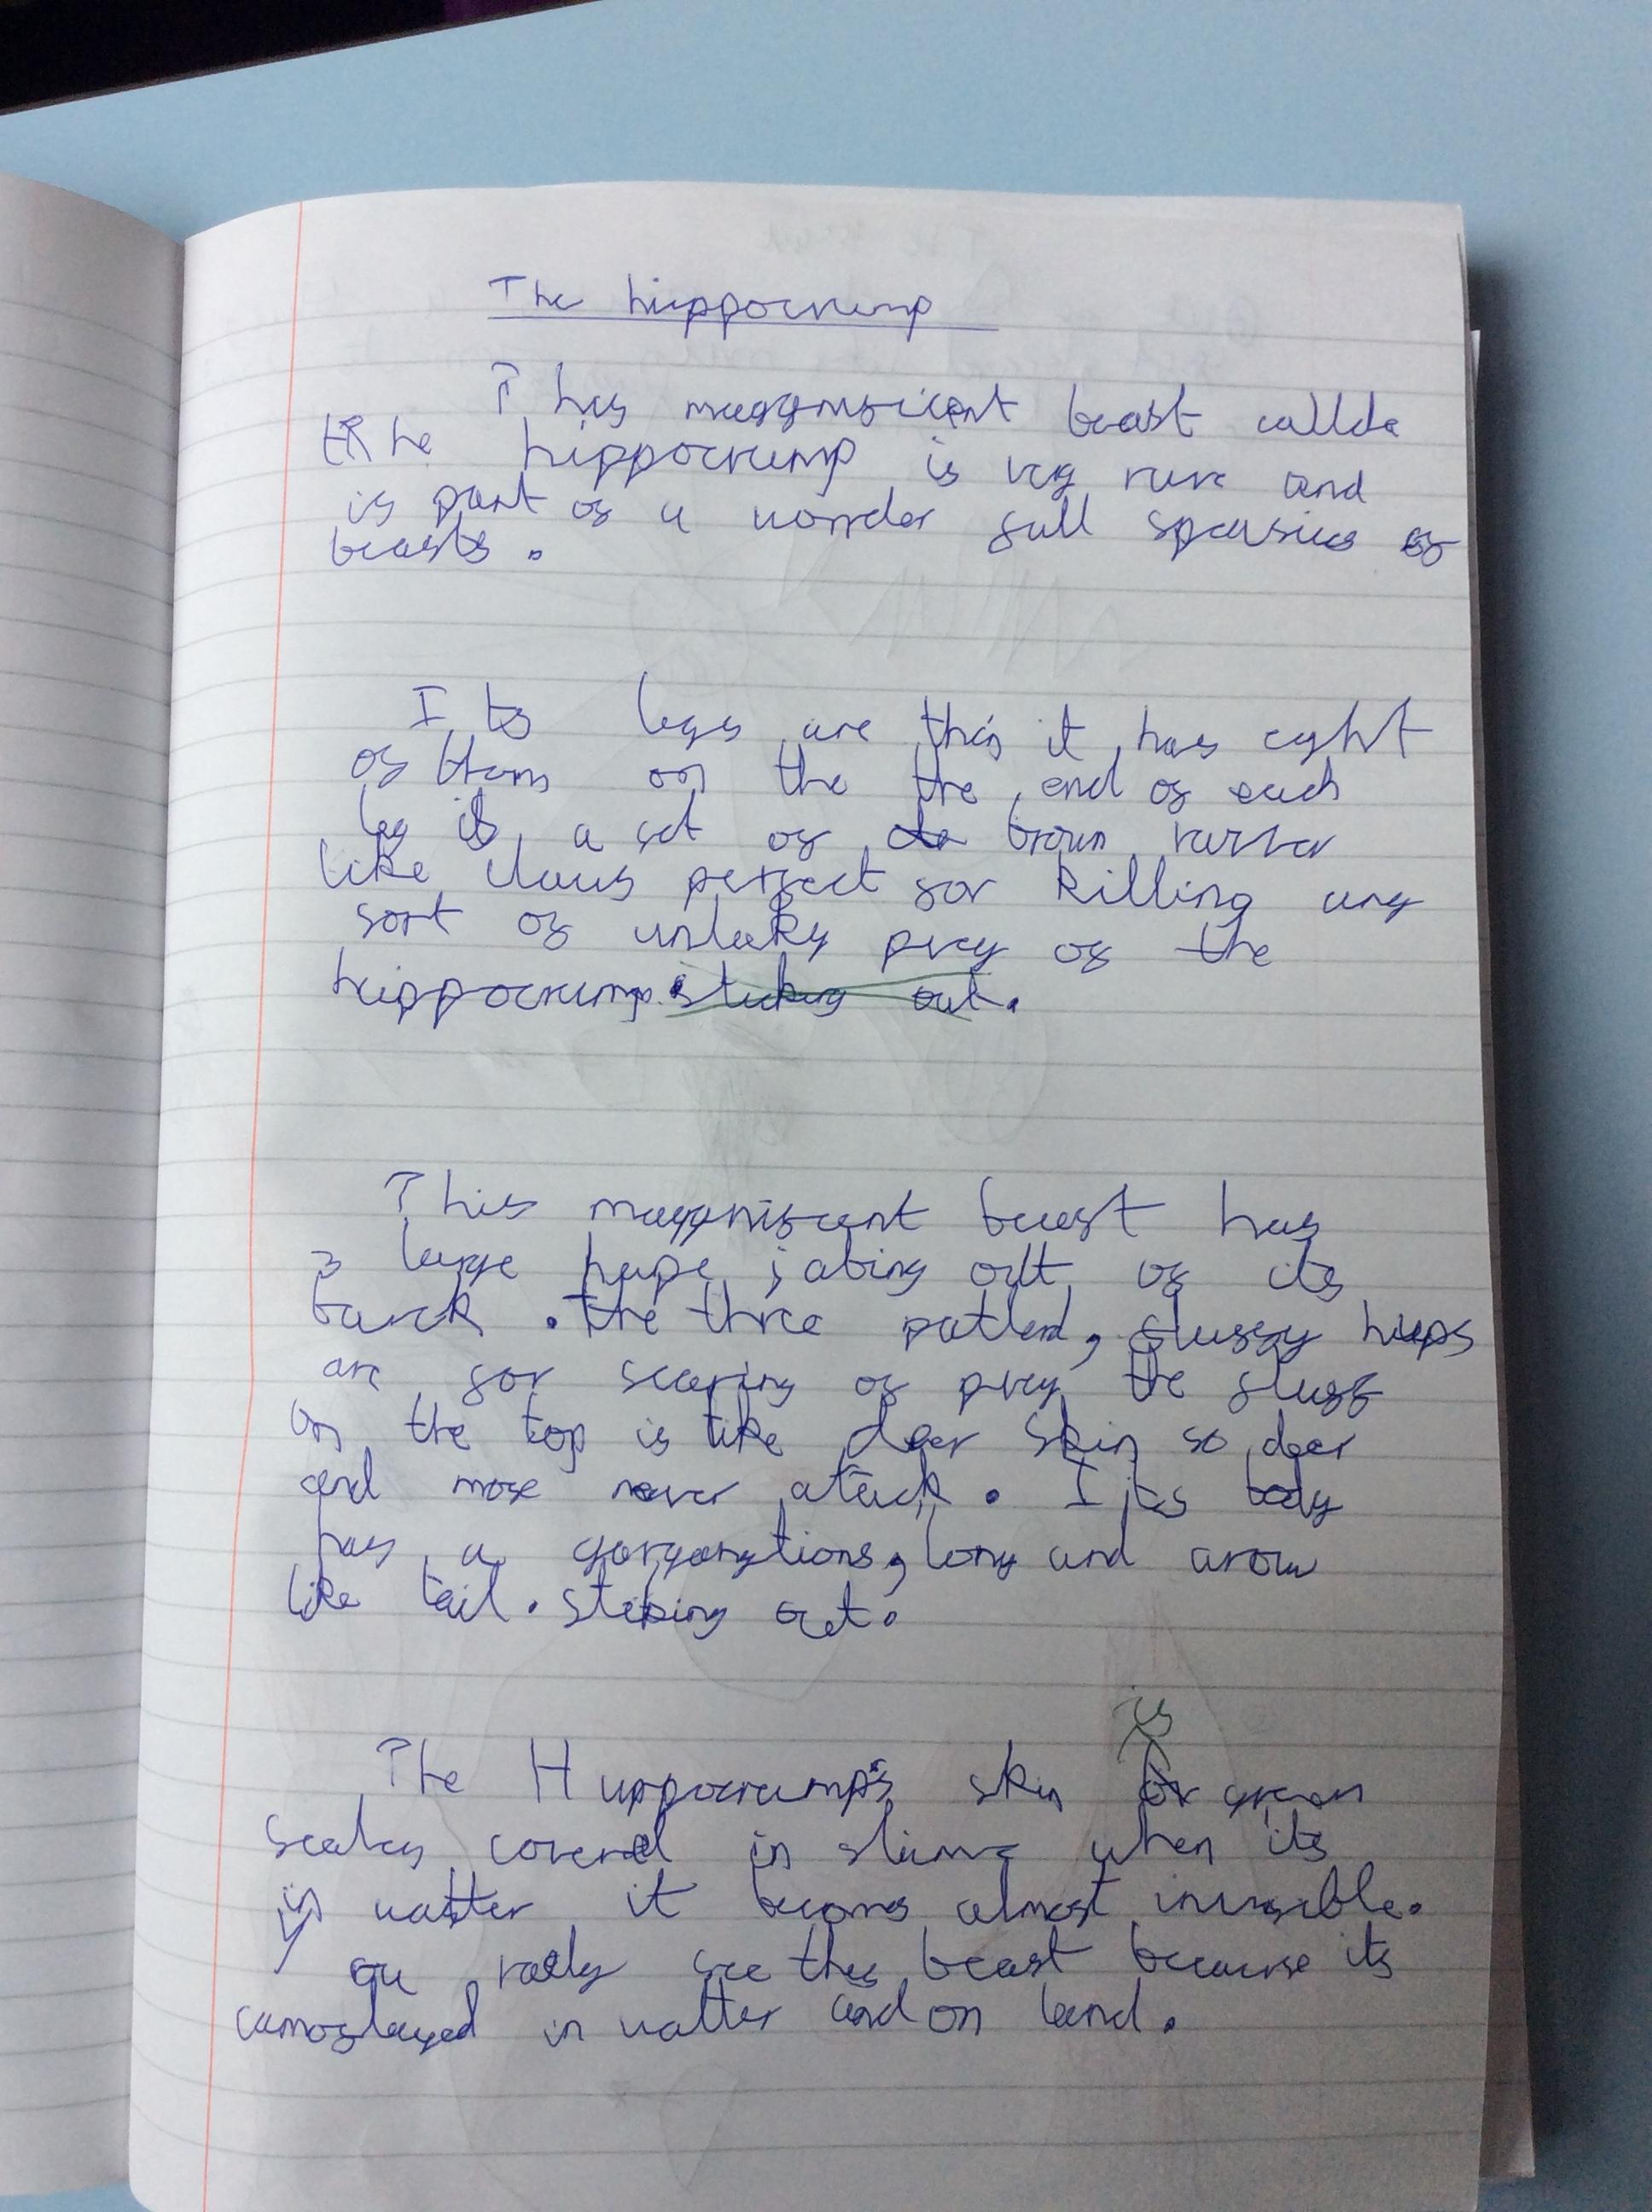 The hippocrump
This magynificent beast callde
the hippocrump is vey rare and
is part of a wonder full spearsies of
beasts.
Its legs are this it has eght
of them on the the end of each
leg is a set of brown rarser
like claws perfect for killing any
sort of unlucky prey of the
hippocrump. sticking out.
This magynificent beast has
3 large hupe jabing out of its
barck. The three patterd, fluffy hups
are for scaring of prey the fluff
on the top is like deer skin so deer
and mose never atack. Its body
has a gorgontions, long and arow
like tail. sticking out.
is
The Huppocrump's skin green
scales covered in slime when its
in watter it becoms almost invisible.
You rarly see this beast because its
camoflayed in watter and on land.